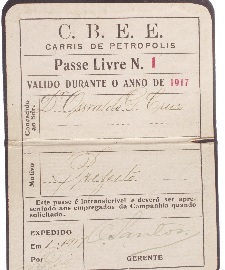 C. B. E. E.
CARRIS DE PETROPOLIS
Passe Livre N. 1
VALIDO DURANTE O ANNO DE 1917
Concedido ao Snr. Dr. Oswaldo G. Cruz
Motivo Prefeito
Este passe é intransferivel e deverá ser apre-
sentado aos empregados da Companhia quando
solicitado.
EXPEDIDO
Em
Por
GERENTE